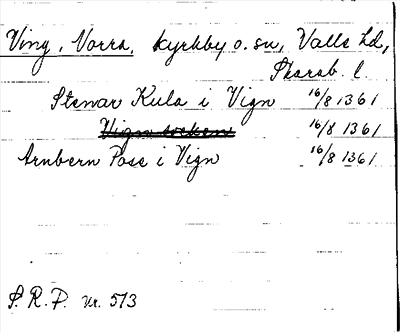 Ving, Norra, kyrkby o. sn, Valle hd,
Skarab. l.
Stenar Kula i Vign 16/8 1361
Vign socken 16/8 1361
Arnbern Pose i Vign 16/8 1361
S. R. P. nr. 513